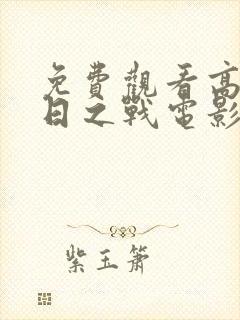 免費觀看高
日之戰電影
紫玉簫